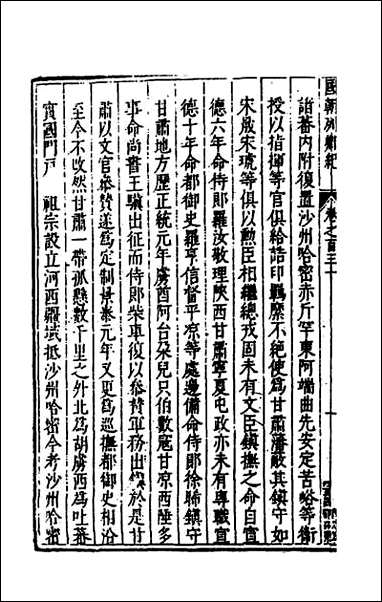 國朝列卿紀 卷之百三十
諸蕃内附復置沙州哈密赤斤罕東阿端曲先安定苦峪等衛
授以指揮等官俱給誥印羈縻不絶使爲甘肅藩蔽其鎮守如
宋晟宋琥等俱以勲臣相繼總戎固未有文臣鎮撫之命自宣
德六年命侍郎羅汝敬理陝西甘肅寧夏屯政亦未有專職宣
德十年命都御史羅亨信督平凉等處邊備命侍郎徐晞鎮守
甘肅地方歴正統元年虜酋阿台朶兒只伯數冦甘凉西陲多
事命尚書王驥出征而侍郎柴車復以叅賛軍務出 於是甘
肅以文官叅賛遂爲定制景泰元年又更爲廵撫都御史相沿
至今不攺然甘肅一帶孤懸數千里之外北爲胡虜西爲吐蕃
實國門户 祖宗設立河西疆域抵沙州哈密今考沙州哈密